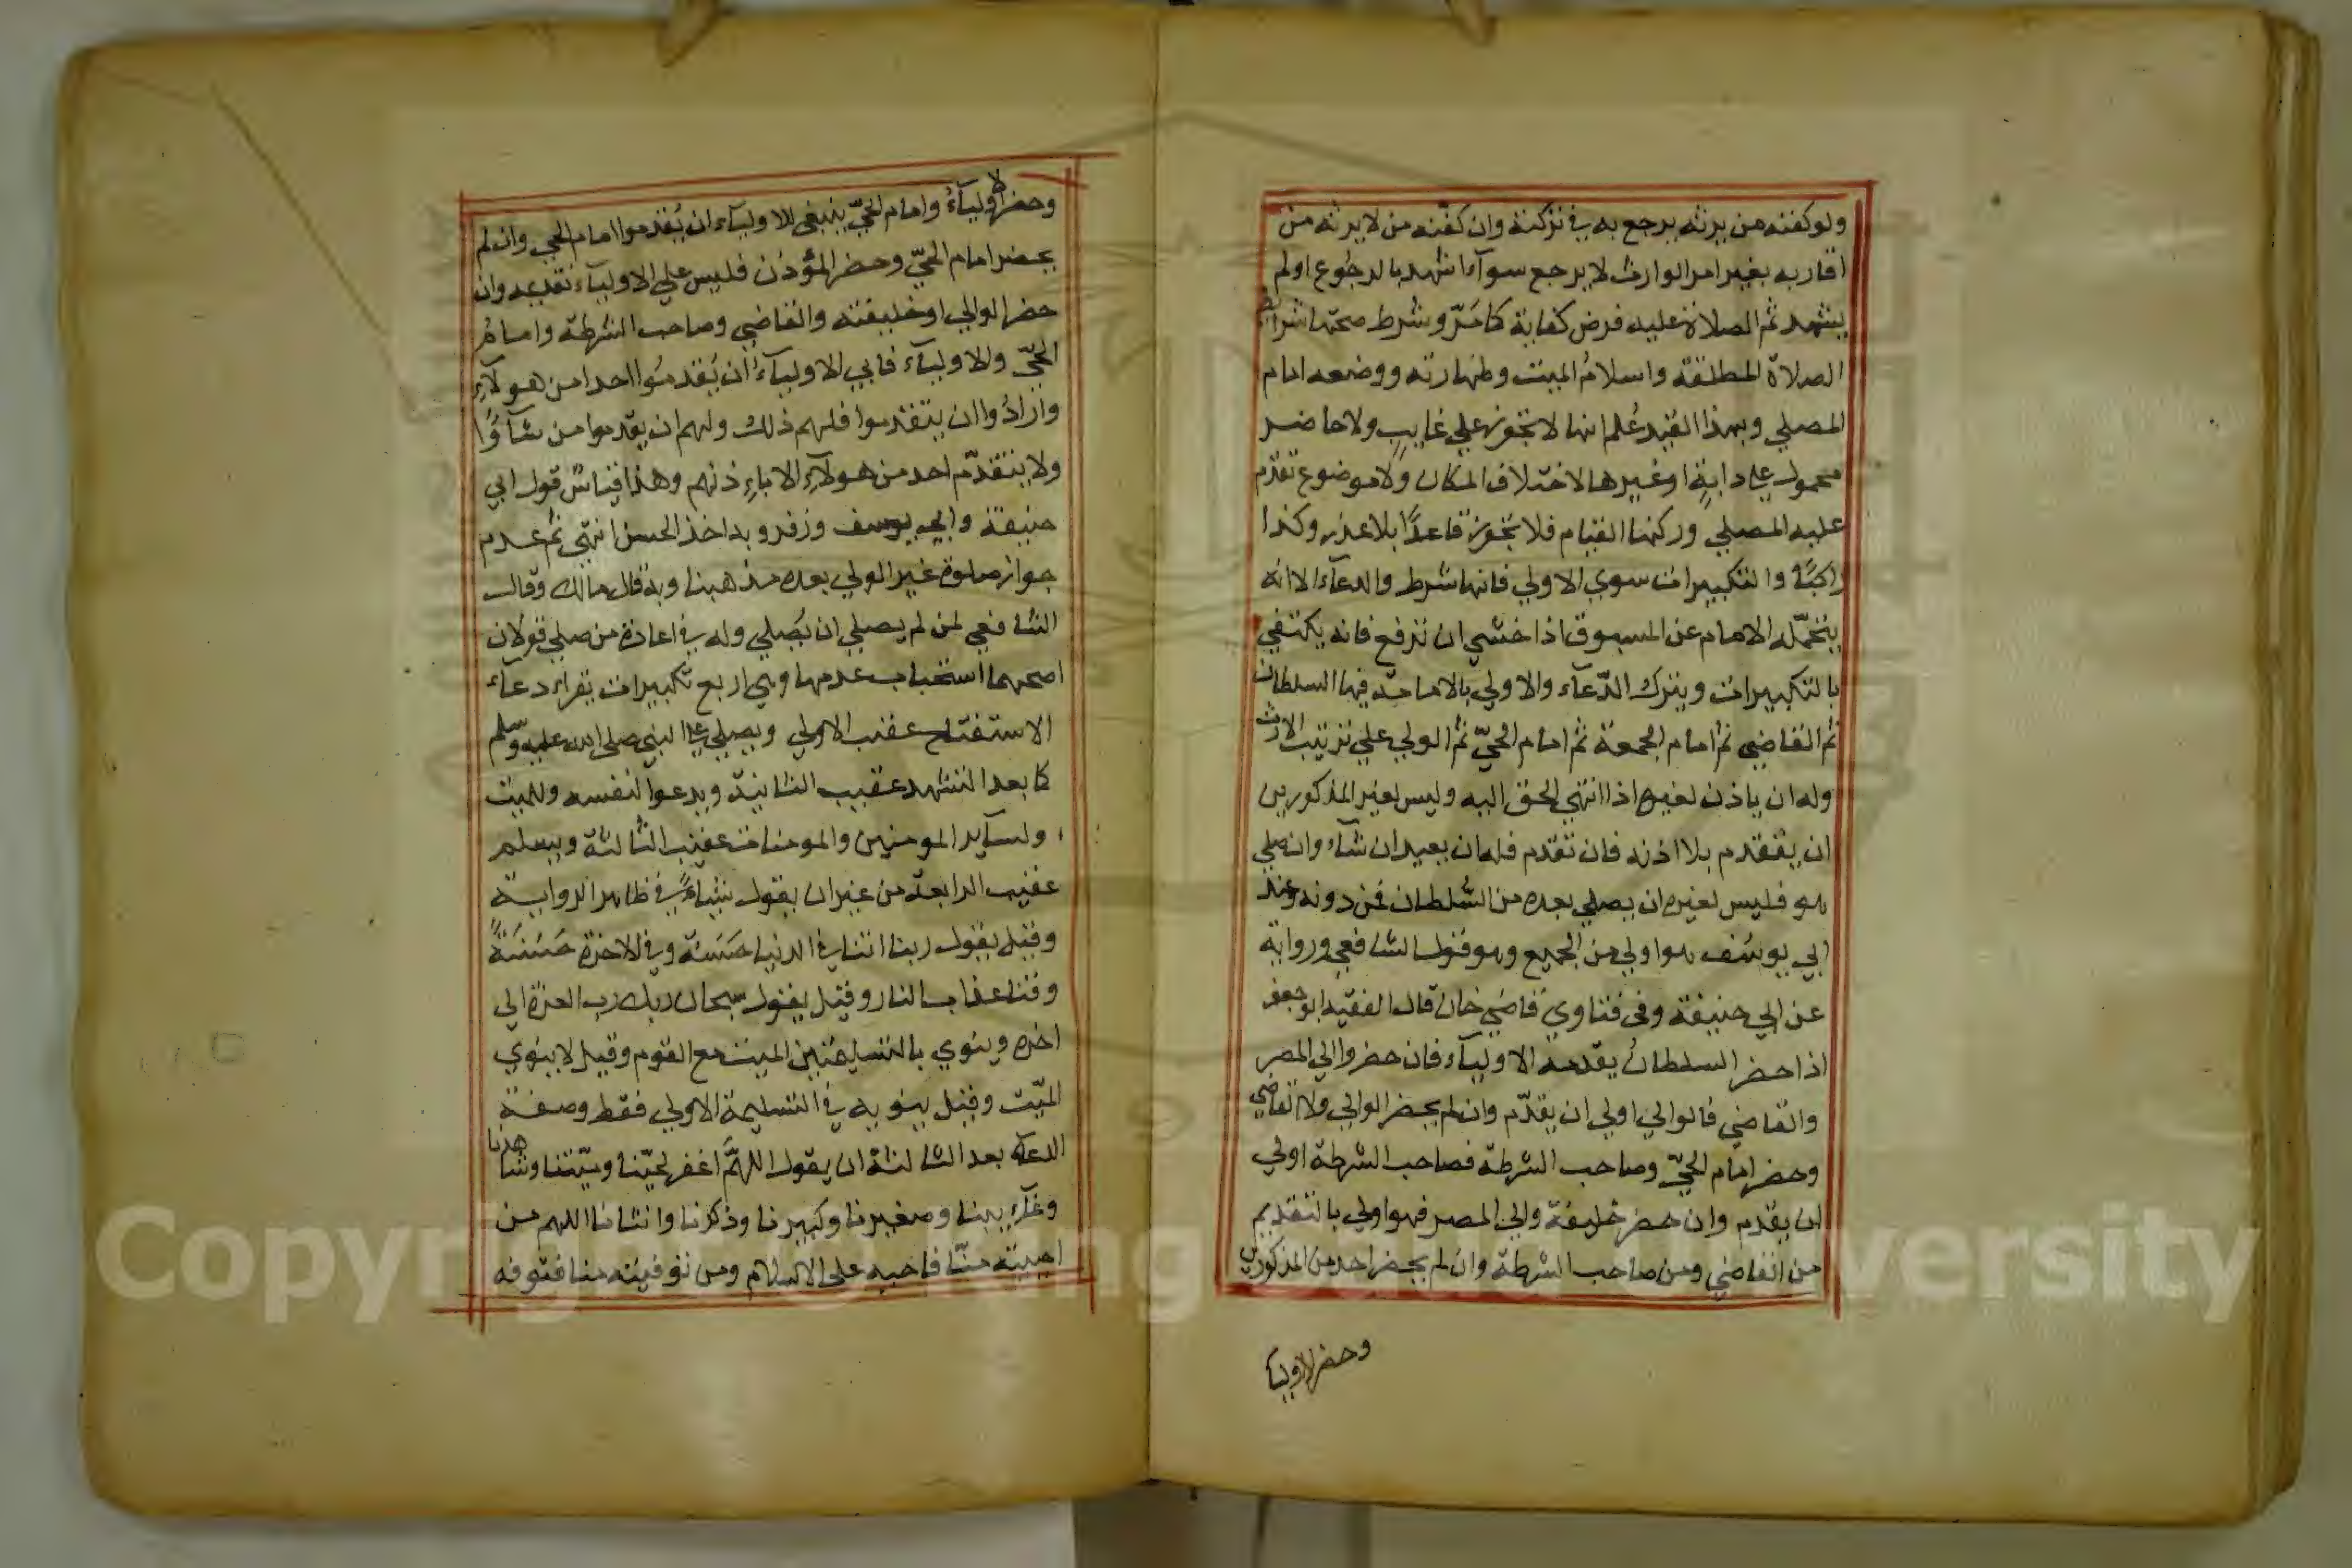 ولو كفنه من يرثه يرجع به في تركته وان كفّنه من لا يرثه من
اقاربه بغير امر الوارث لا يرجع سوآء اشهد بالرجوع اولم
يشهد ثم الصلاة عليه فرض كفاية كما مَرّ وشرط صحتها شرايط
الصلاة المطلقة واسلام الميت وطهارته ووضعه امام
المصلي وبهذا القيد عُلم انها لا تجوز علي غايب ولا حاضر
محمول علي دابةٍ او غيرها لاختلاف المكان ولا موضوع تقدم
عليه المصلي وركنها القيام فلا تجوز قاعدًا بلا عذر وكذا
راكبًا والتكبيرات سوي الاولي فانها شرط والدعآء الا انه
يتحمّله الامام عن المسبوق اذا خشي ان ترفع فانه يكتفي
بالتكبيرات ويترك الدّعآء والاولي بالامامة فيها السلطان
ثم القاضي ثم امام الجمعة ثم امام الحيّ ثم الولي علي ترتيب الارث
وله ان ياذن لغيره اذا انتهي الحق اليه وليس لغير المذكورين
ان يتقدم بلا اذنه فان تقدم فله ان يعيد ان شآء وان صلي
هو فليس لغيره ان يصلي بعده من السُّلطان فمن دونه وعند
ابي يوسف هو اولي من الجميع وهو قول الشافعي ورواية
عن ابي حنيفة وفي فتاوي قاضي خان قال الفقيه ابو جعفر
اذا حضر السلطان يقدمه الاوليآء فان حضر والي المصر
والقاضي فالوالي اولي ان يقدّم وان لم يحضر الوالي ولا القاضي
وحضر امام الحيّ وصاحب الشرطة فصاحب الشرطة اولي
ان يقدم وان حضر خليفة والي المصر فهو اولي بالتقديم
من القاضي ومن صاحب الشرطة وان لم يحضر احد من المذكورين
وحضر الاوليآ
وحضر الاوليآءُ وامام الحيّ ينبغي للاوليآء ان يُقدموا امام الحي وان لم
يحضر امام الحيّ وحضر المؤذن فليس علي الاوليآء تقديمه وان
حضر الوالي او خليفته والقاضي وصاحب الشرطة وامامُ
الحيّ والاوليآء فابي الاوليآءُ ان يُقدمُوا احدا من هولآءِ
وارادُوا ان يتقدموا فلهم ذلك ولهم ان يقدموا من شآؤُا
ولا يتقدّم احد من هولآءِ الا باءِذنهم وهذا قياسُ قول ابي
حنيفة وابي يوسف وزفر وبه اخذ الحسن انتهي ثم عدم
جواز صلوة غير الولي بعده مذهبنا وبه قال مالك وقال
الشافعي لمن لم يصلي ان يُصلي وله في اعادة من صلي قولان
اصحهما استحباب عدمها وهي اربع تكبيرات يقراء دعآء
الاستفتاح عقب الاولي ويصلي علي النبي صلي الله عليه وسلم
كما بعد التشهد عقيب الثانية ويدعوا لنفسه وللميت
ولسآير المومنين والمومنات عقيب الثالثة ويسلم
عقيب الرابعة من غير ان يقول شياءً في ظاهر الرواية
وقيل يقول ربنا اتنا في الدنيا حَسَنَة وفي الاخرة حَسَنَةً
وقنا عذاب النار وقيل يقول سبحان ربك رب العزة الي
اخره وينوي بالتسليمتين الميت مع القوم وقيل لا ينوي
الميّت وقيل ينويه في التسليمة الاولي فقط وصفة
الدعآء بعد الثالثة ان يقول اللهمَّ اغفر لحيّنا وميّتنا وشاهدنا
وغآءِيبنا وصغيرنا وكبيرنا وذكرنا وانثانا اللهم من
احييته منّا فاحيه على الاسلام ومن توفيته منا فتوفه
Copyright © King Saud University